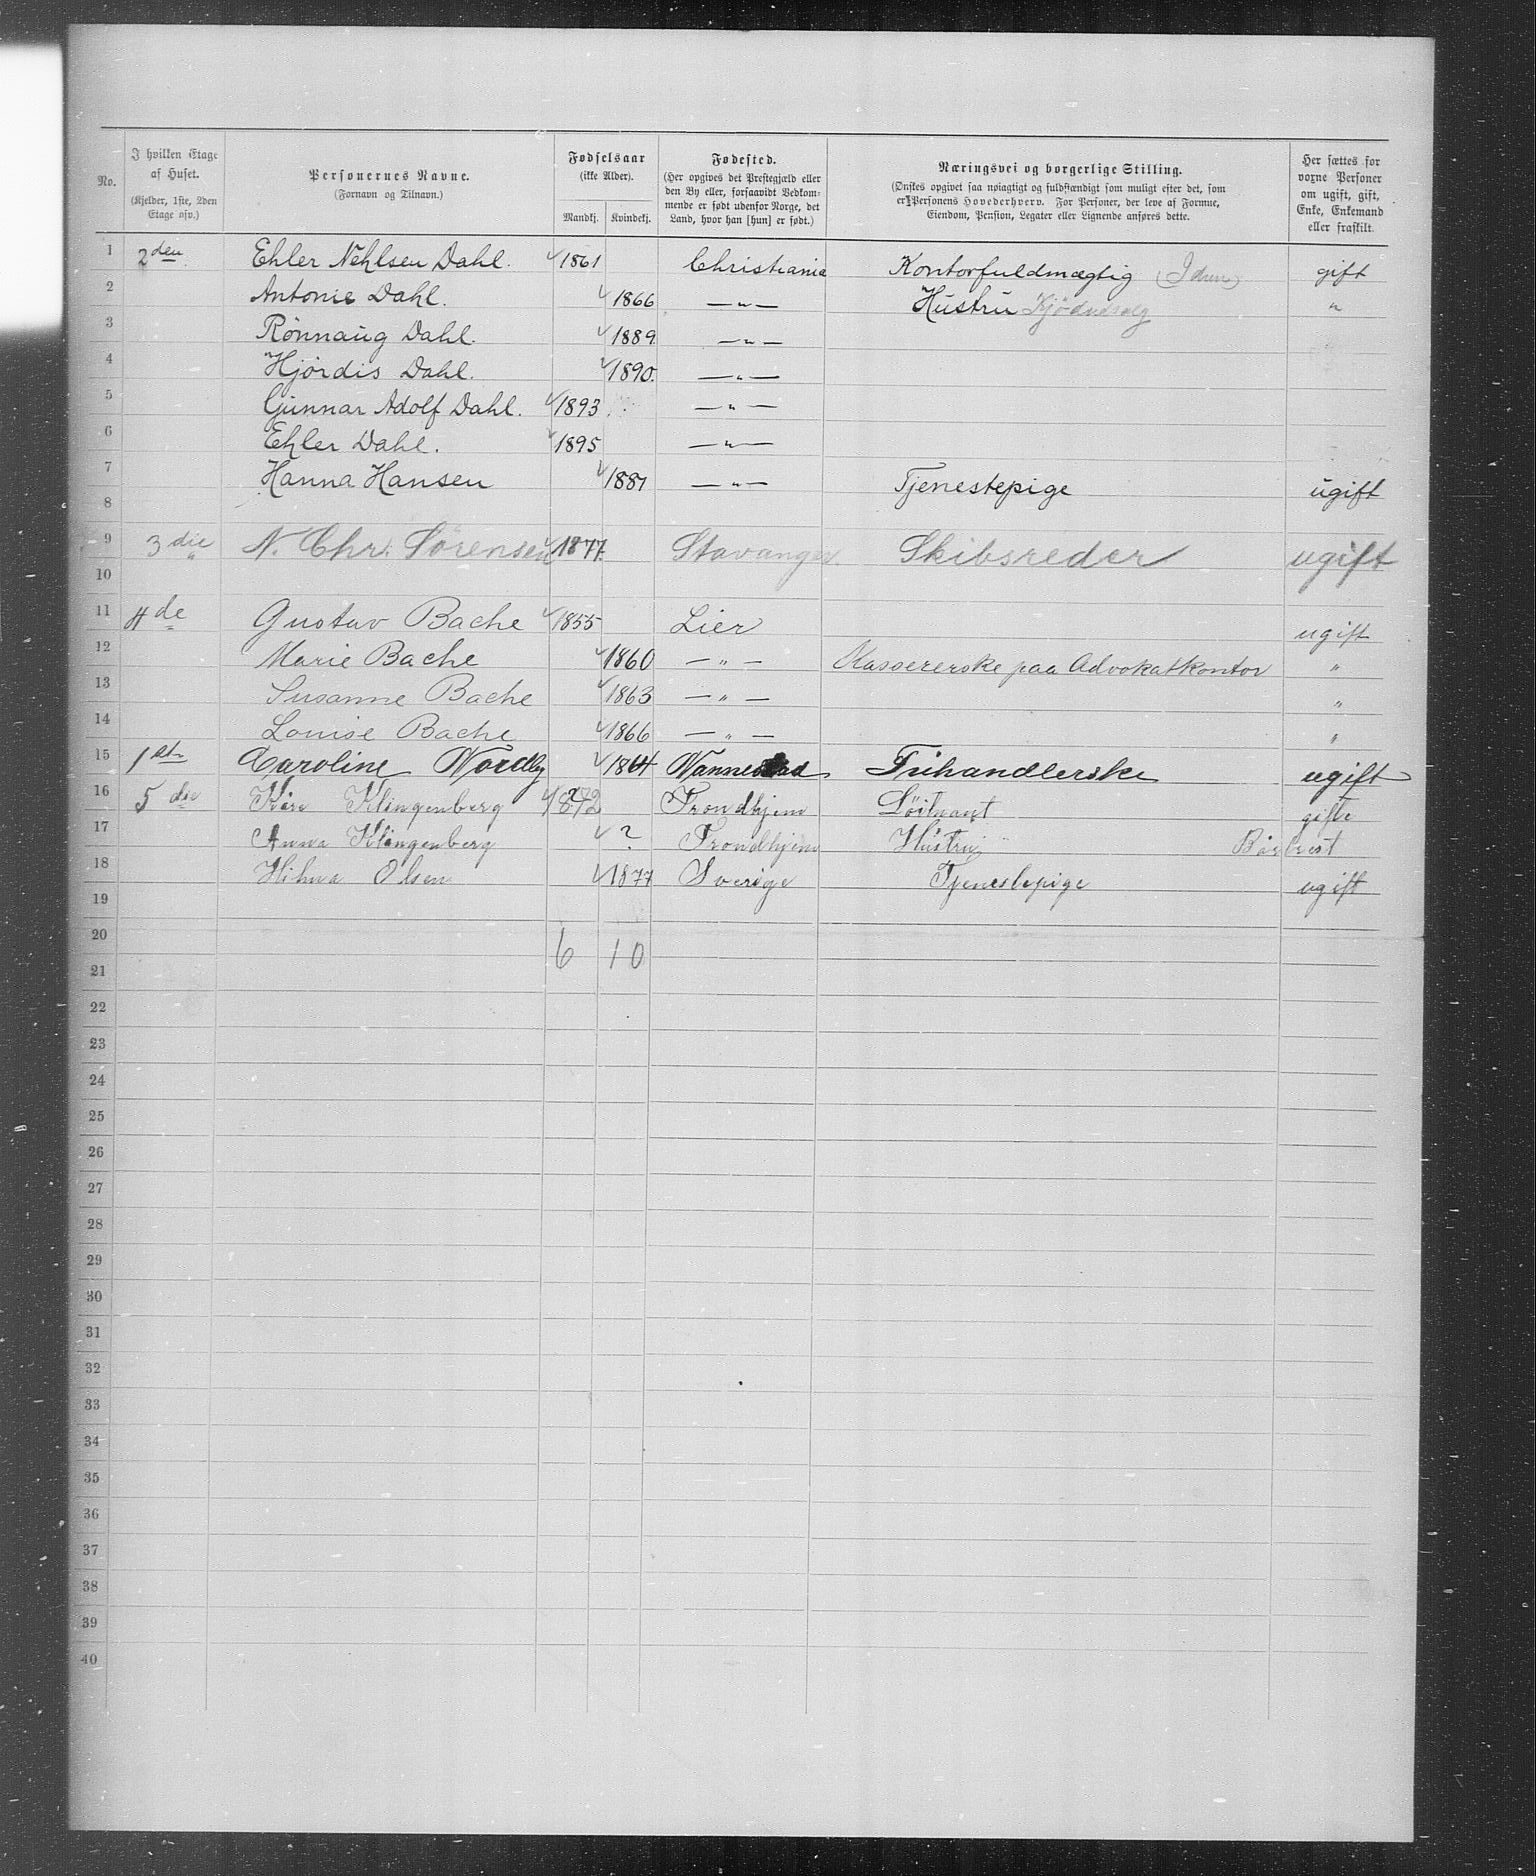 No.
I hvilken Etage
af Huset.
(Kjelder, 1ste, 2den
Etage osv.)
Personernes Navne.
(Fornavn og Tilnavn.)
Fødselsaar
(ikke Alder).
Mandkj. Kvindekj.
Fødested.
(Her opgives det Præstegjæld eller
den By eller, forsaavidt Vedkom-
mende er født udenfor Norge, det
Land, hvor han [hun] er født.)
Næringsvei og borgerlige Stilling.
(Ønskes opgivet saa nøiagtigt og fuldstændigt som muligt efter det, som
er Personens Hovederhverv. For Personer, der leve af Formue,
Eiendom, Pension, Legater eller Lignende anføres dette.
Her sættes for
voxne Personer
om ugift, gift,
Enke, Enkemand
eller fraskilt.
1 2den Ehler Nehlsen Dahl. 1861 Christiania Kontorfuldmægtig (Idun) gift
2 Antonie Dahl. 1866 — " — Hustru Kjødudsalg "
3 Rönnaug Dahl. 1889 — " —
4 Hjördis Dahl. 1890. — " —
5 Gunnar Adolf Dahl. 1893 — " —
6 Ehler Dahl. 1895 — " —
7 Hanna Hansen 1881 — " — Tjenestepige ugift
8
9 3die " N. Chr. Sörensen 1877. Stavanger. Skibsreder ugift
10
11 4de Gustav Bache 1855 Lier ugift
12 Marie Bache 1860 — " — Kassererske paa Advokatkontor "
13 Susanne Bache 1863 — " — "
14 Louise Bache 1866 — " — "
15 1ste Caroline Nordby 1864 Nannestad Frihandlerske ugift
16 5die Kåre Klingenberg 1872 Trondhjem Löitnant gifte
17 Anna Klingenberg ? Trondhjem Hustru
18 Hilma Olsen 1877 Sverige Tjenestepige ugift
19
20 6 10
21
22
23
24
25
26
27
28
29
30
31
32
33
34
35
36
37
38
39
40